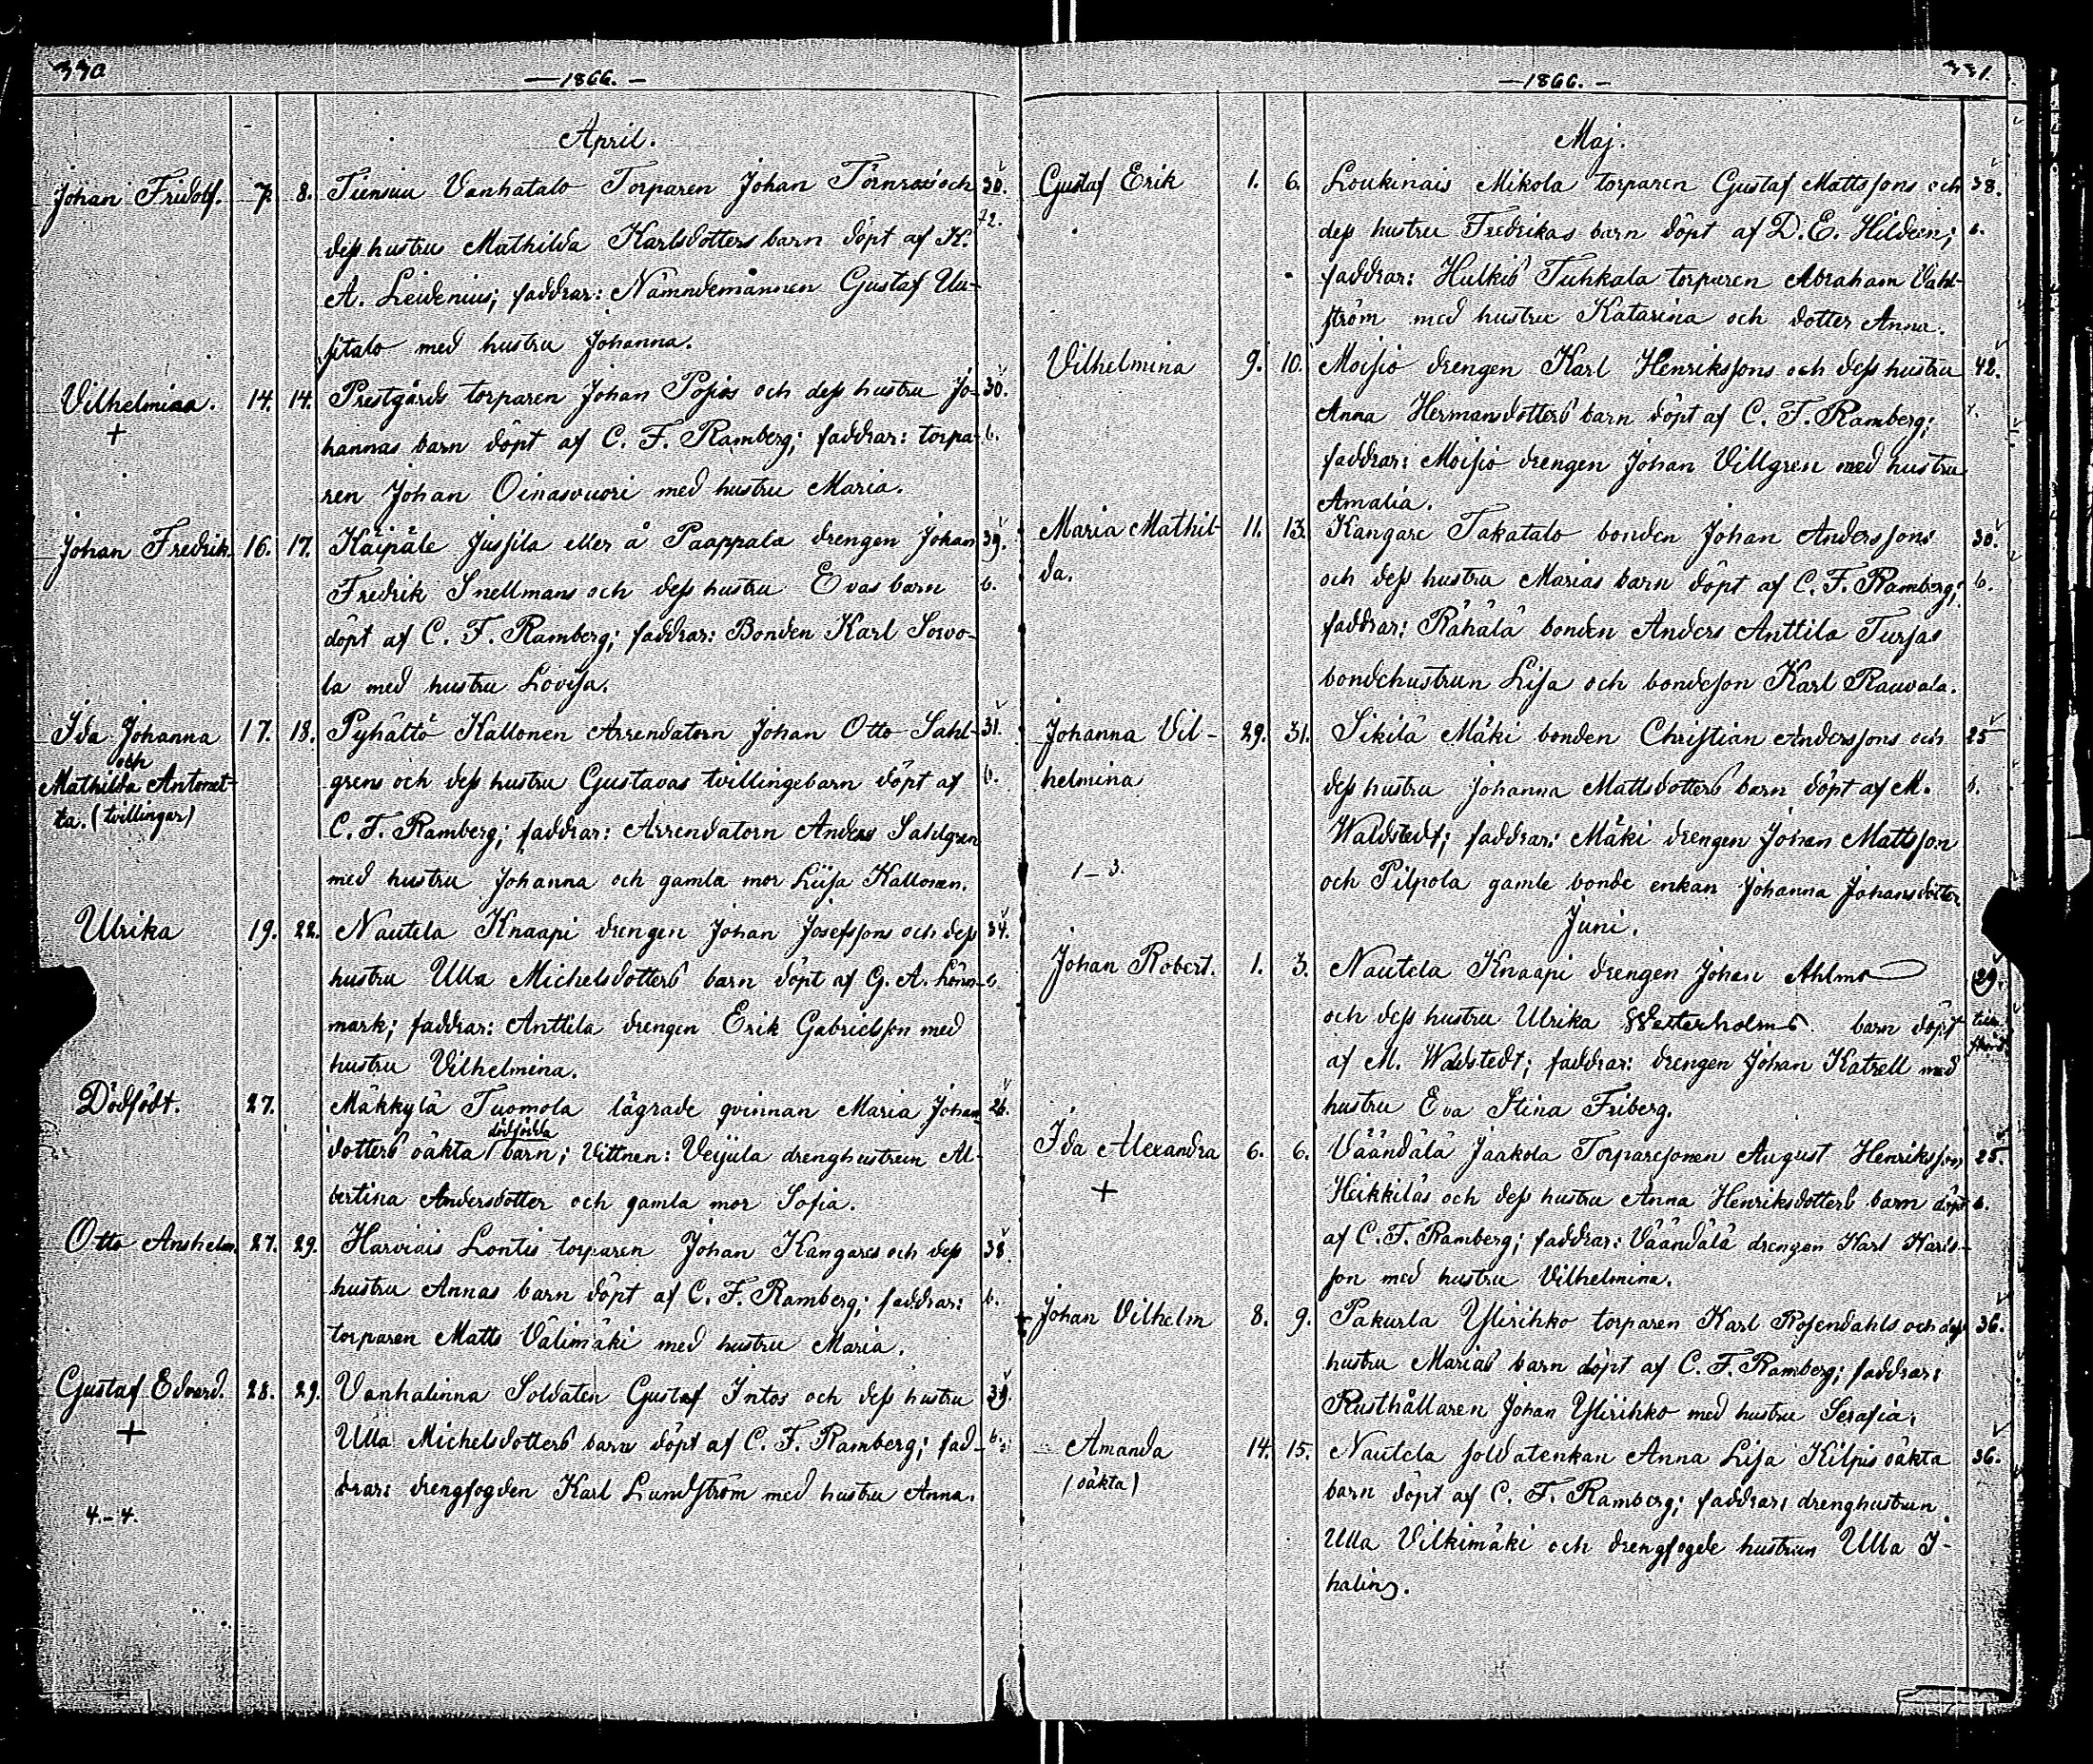 330
— 1866. —
April.
Johan Fridolf. 7. 8. Tunsuu Vanhatalo Torparen Johan Törnroos och 30.
72.
dess hustrus Mathilda Karlsdotters barn döpt af K.
A. Leidenius; faddrar: Nämndemannen Gustaf Uu-
sitalo med hustru Johanna.
Vilhelmina. 14. 14. Prestgårds torparen Johan Popis och dess hustru Jo- 30.
+ hannas barn döpt af C. F. Ramberg; faddrar: torpa- 6.
ren Johan Oinasvuori med hustru Maria.
Johan Fredrik. 16. 17. Käipäle Jussila eller å Paappala drengen Johan 39.
Fredrik Snellmans och dess hustru Evas barn 6.
döpt af C. F. Ramberg; faddrar: Bonden Karl Sorvo-
la med hustru Lovisa.
Ida Johanna 17. 18. Pyhältö Kallonen Arrendatorn Johan Otto Sahl- 31.
och
Mathilda Antonet- grens och dess hustru Gustavas tvillingebarn döpt af 6.
ta. (tvillingar) C. F. Ramberg; faddrar: Arrendatorn Anders Sahlgren
med hustru Johanna och gamla mor Liisa Kallonen.
Ulrika 19. 22. Nautela Knaapi drengen Johan Josefssons och dess 34.
hustru Ulla Michelsdotters barn döpt af G. A. Lönn- 6.
mark; faddrar: Anttila drengen Erik Gabrielsson med
hustru Vilhelmina.
Dödfödt. 27. Mäkkylä Tuomola lägrade qvinnan Maria Johans 26.
dödfödda
dotters oäkta barn; Vittnen: Veijula drenghustrun Al-
bertina Andersdotter och gamla mor Sofia.
Otto Anshelm. 27. 29. Harviais Lontis torparen Johan Kangares och dess 38.
hustru Annas barn döpt af C. F. Ramberg; faddrar: 6.
torparen Matts Välimäki med hustru Maria.
Gustaf Edvard. 28. 29. Vanhalinna Soldaten Gustaf Intos och dess hustru 39.
+ Ulla Michelsdotters barn döpt af C. F. Ramberg; fad- 6.
drar: drengfogden Karl Lundström med hustru Anna.
4.-4.
331.
— 1866. —
Maj.
Gustaf Erik 1. 6. Loukinais Mikola torparen Gustaf Mattssons och 38.
dess hustru Fredrikas barn döpt af D. E. Hildeen; 6.
faddrar: Hulkis Tuhkala torparen Abraham Vahl-
ström med hustru Katarina och dotter Anna.
Vilhelmina 9. 10. Moisio drengen Karl Henrikssons och dess hustru 42.
Anna Hermansdotters barn döpt af C. F. Ramberg;
faddrar: Moisio drengen Johan Villgren med hustru
Amalia.
Maria Mathil- 11. 13. Kangare Takatalo bonden Johan Anderssons 30.
da. och dess hustru Marias barn döpt af C. F. Ramberg; 6.
faddrar: Rähälä bonden Anders Anttila Turjas
bondehustrun Lisa och bondeson Karl Rauvala.
Johanna Vil- 29. 31. Sikilä Mäki bonden Christian Anderssons och 25
helmina dess hustru Johanna Mattsdotters barn döpt af M. 6.
Waldstedt; faddrar: Mäki drengen Johan Mattsson
1-3. och Pilpola gamle bonde enkan Johanna Johansdotter.
Juni.
Johan Robert. 1. 3. Nautela Knaapi drengen Johan Ahlms 29.
och dess hustru Ulrika Westerholms barn döpt
af M. Waldstedt; faddrar: drengen Johan Katrell med
hustru Eva Stina Friberg.
Ida Alexandra 6. 6. Väändälä Jaakola Torparesonen August Henriksson 25.
+ Heikkiläs och dess hustru Anna Henriksdotters barn döpt 6.
af C. F. Ramberg; faddrar: Väändälä drengen Karl Karls-
son med hustru Vilhelmina.
Johan Vilhelm 8. 9. Pakurla Ylirihko torparen Karl Rosendahls och dess 36.
hustru Marias barn döpt af C. F. Ramberg; faddrar:
Rusthållaren Johan Ylirihko med hustru Serafia.
Amanda 14. 15. Nautela soldatenkan Anna Lisa Kilpis oäkta 36.
(oäkta) barn döpt af C. F. Ramberg; faddrar: drenghustrun
Ulla Vilkimäki och drengfogde hustrun Ulla I-
halin.